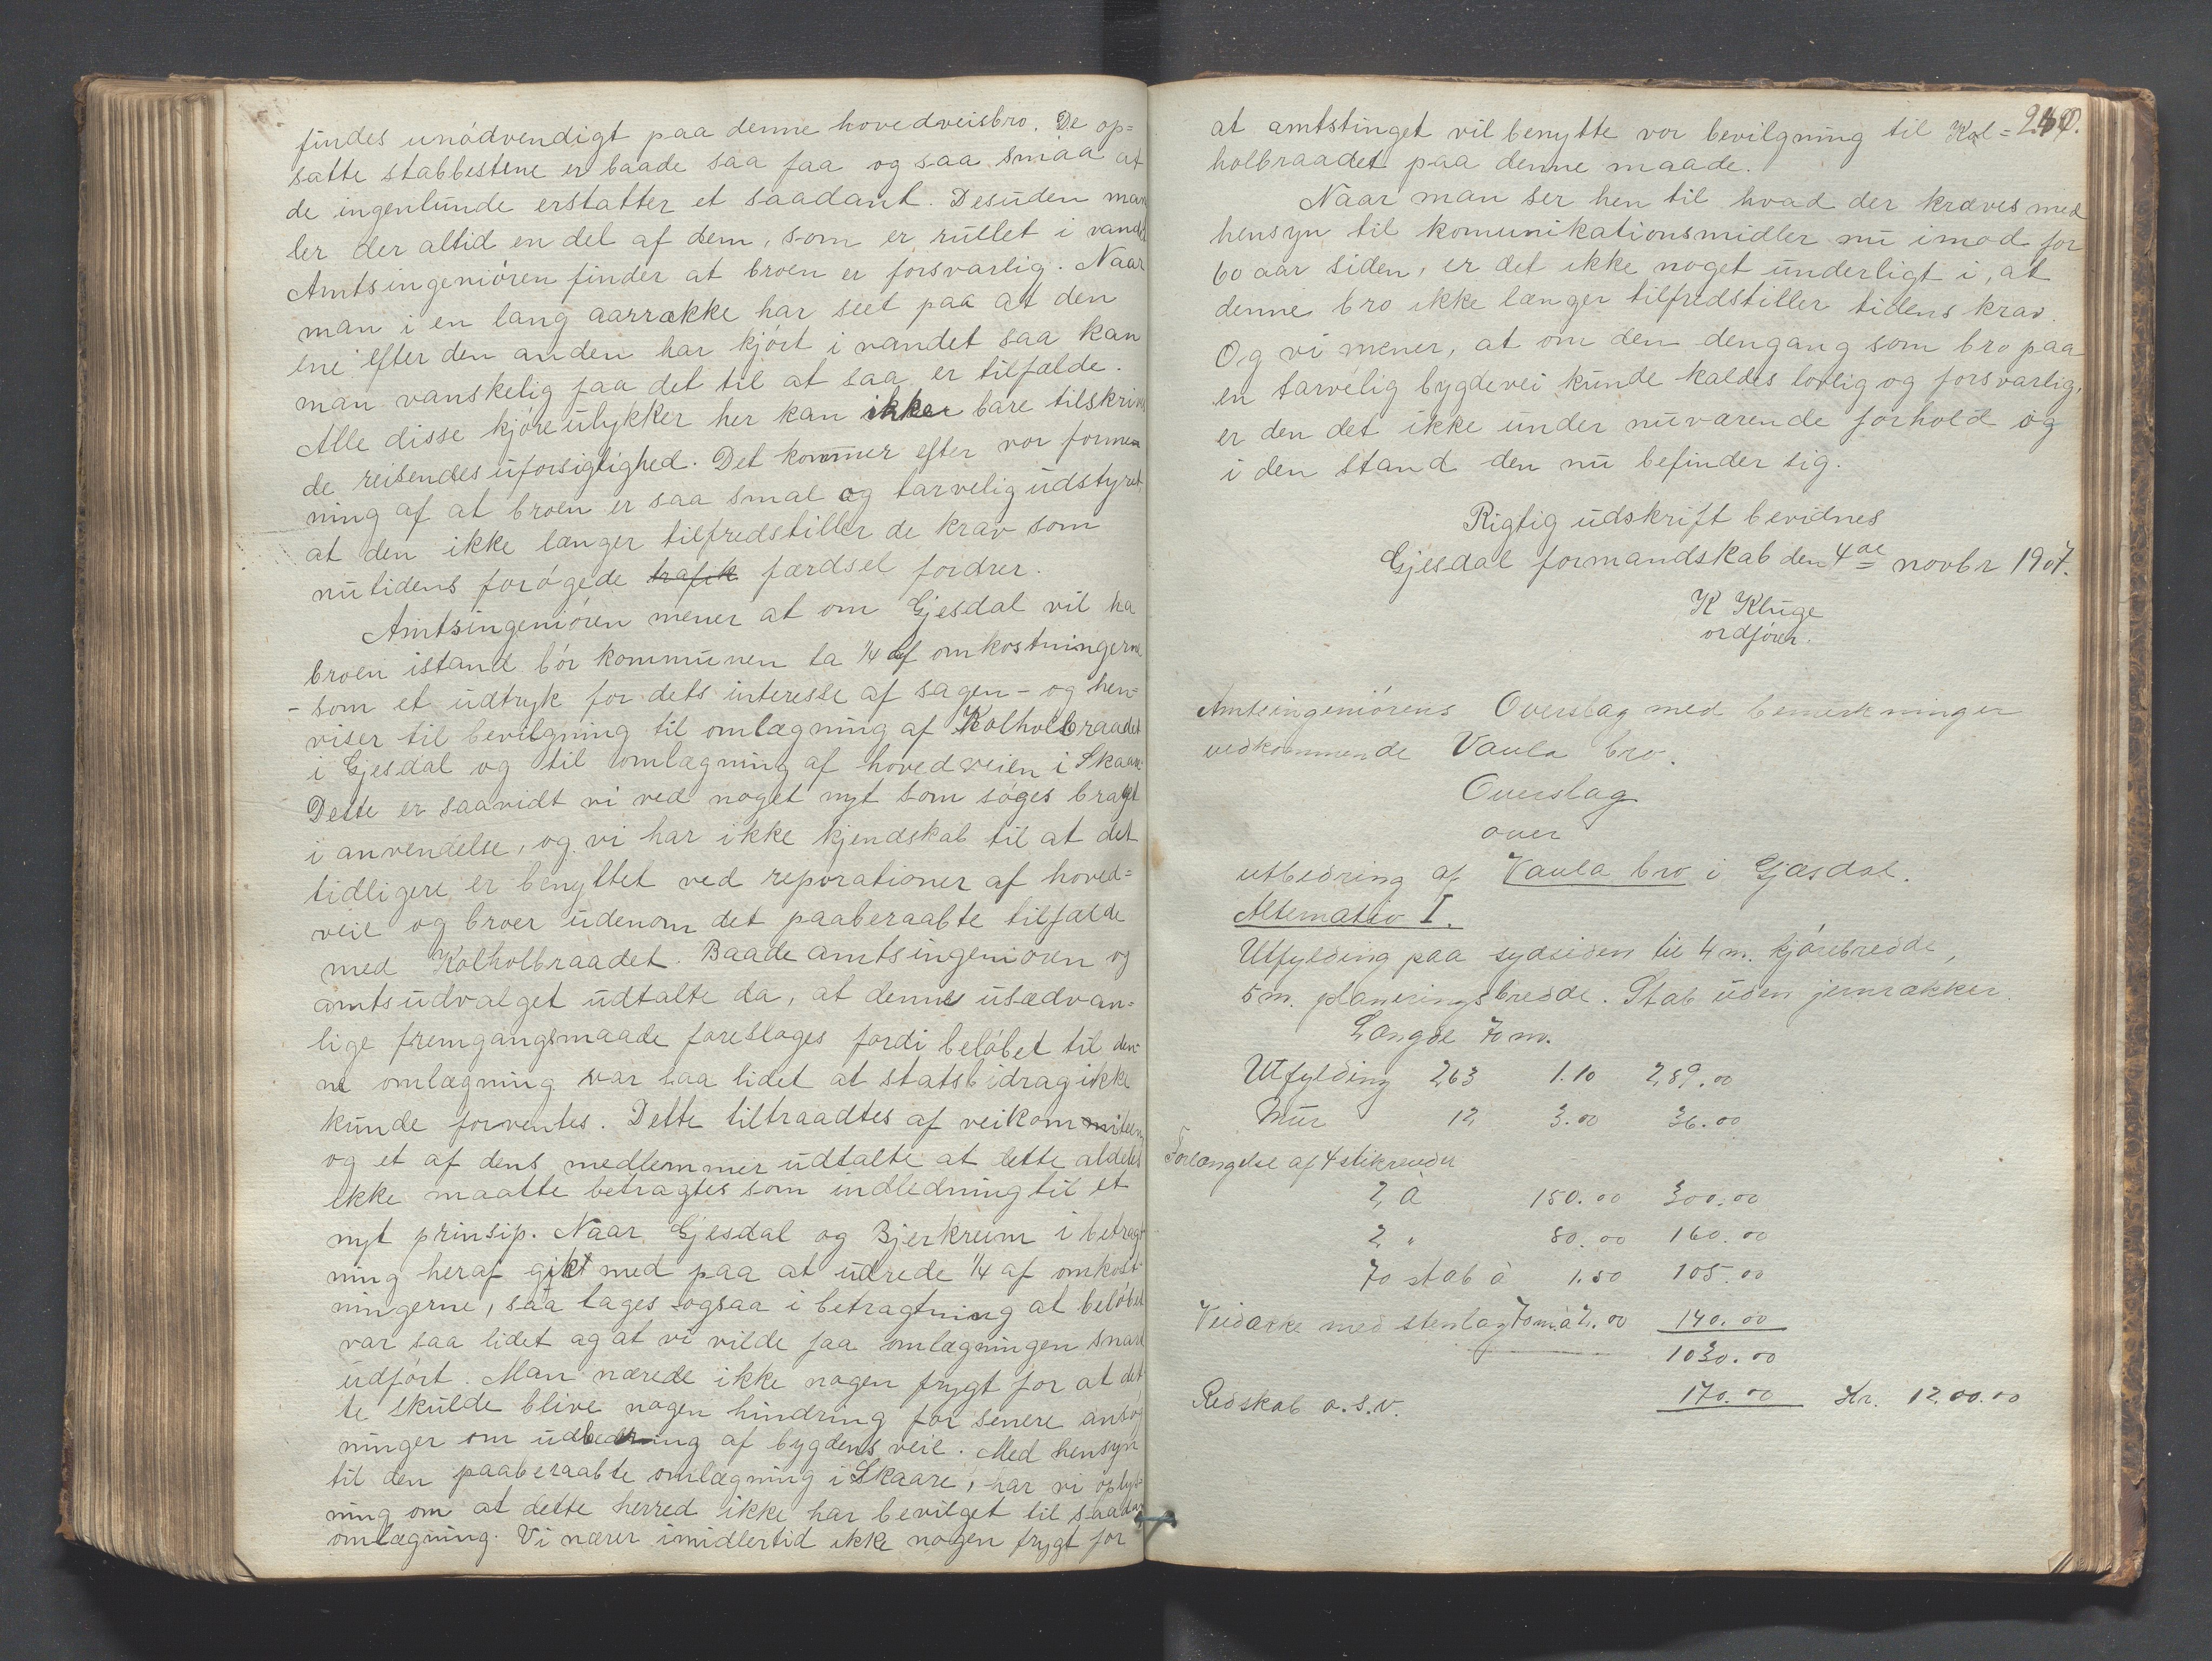 findes unødvendigt paa denne hovedveisbro. De op=
satte stabbestene er baade saa faa og saa smaa at
de ingenlunde erstatter et saadant. Desuden man
ler der altid en del af dem, som er rullet i vandet
Amtsingeniøren finder at broen er forsvarlig. Naar
man i en lang aarrække har seet paa at den
ene efter den anden har kjørt i vandet saa kan
man vanskelig faa det til at saa er tilfælde.
Alle disse kjøreulykker her kan ikke bare tilskrives
de reisendes uforsigtighed. Det kommer efter vor forme
ning af at broen er saa smal og tarvelig udstyret,
at den ikke længer tilfredstiller de krav som
nutidens forøgede trafik færdsel fordrer.
Amtsingeniøren mener at om Gjesdal vil ha
broen istand bør kommunen ta 1/4 af omkostningerne
- som et udtryk for dets interesse af sagen - og hen-
viser til bevilgning til omlægning af Kolholbraadet
i Gjesdal og til omlægning af hovedveien i Skaare
Dette er saavidt vi ved noget nyt som søges bragt
i anvendelse, og vi har ikke kjendskab til at det
tidligere er benyttet ved reparationer af hoved=
veie og broer udenom det paaberaabte tilfælde
med Kolholbraadet. Baade amtsingeniøren og
amtsudvalget udtalte da, at denne usædvan=
lige fremgangsmaade foreslages fordi beløbet til den-
ne omlægning var saa lidet at statsbidrag ikke
kunde forventes. Dette tiltraadtes af veikommiteen
og et af dens medlemmer udtalte at dette aldeles
ikke maatte betragtes som indledning til et
nyt prinsip. Naar Gjesdal og Bjerkreim i betragt
ning heraf gikt med paa at udrede 1/4 af omkost-
ningerne, saa tages ogsaa i betragtning at beløbet
var saa lidet og at vi vilde faa omlægningen snart
udført. Man nærede ikke nogen frygt for at det
te skulde blive nogen hindring for senere ansøg
ninger om udbedring af bygdens veie. Med hensyn
til den paaberaabte omlægning i Skaare, har vi oplys-
ning om at dette herred ikke har bevilget til saadan
omlægning. Vi nærer imidlertid ikke nogen frygt for
at amtstinget vil benytte vor bevilgning til Kol=
holbraadet paa denne maade.
Naar man ser hen til hvad der kræves med
hensyn til komunikationsmidler nu imod for
60 aar siden, er det ikke noget underligt i, at
denne bro ikke længer tilfredstiller tidens krav.
Og vi mener, at om den dengang som bro paa
en tarvelig bygdevei kunde kaldes lovlig og forsvarlig,
er den det ikke under nuværende forhold og
i den stand den nu befinder sig.
Rigtig udskrift bevidnes
Gjesdal formandskab den 4de novbr 1907.
K Kluge
ordfører.
Amtsingeniørens Overslag med bemerkninger
vedkommende Vaula bro.
Overslag
over
utbedring af Vaula bro i Gjæsdal.
Alternativ I.
Utfylding paa sydsiden til 4 m. kjørebredde,
5 m. planeringsbredde. Stab uden jernrækker.
Længde 70 m.
Utfylding 263 1.10 289.00
Mur 12 3.00 36.00
Forlængelse af 4 stikrender
2 à 150.00 300.00
2 " 80.00 160.00
70 stab à 1.50 105.00
Veidække med stenlag 70 m. à 2.00 140.00
1030.00
Redskab o.s.v. 170.00 Kr. 1200.00